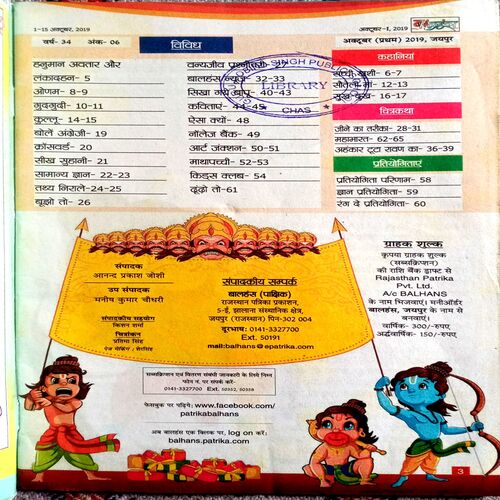 1-15 अक्टूबर, 2019
अक्टूबर-I, 2019
वर्ष- 34 अंक- 06
विविध
अक्टूबर (प्रथम) 2019, जयपुर
हनुमान अवतार और
लंकादहन- 5
ओणम- 8-9
गुदगुदी- 10-11
कुल्लू- 14-15
बोलें अंग्रेजी- 19
क्रॉसवर्ड- 20
सीख सुहानी- 21
सामान्य ज्ञान- 22-23
तथ्य निराले-24-25
बूझो तो- 26
वन्यजीव
बालहंस न्यूज- 32-33
सिखा गये बापू- 40-43
कविताएं- 44-45
ऐसा क्यों- 48
नॉलेज बैंक- 49
आर्ट जंक्शन- 50-51
माथापच्ची- 52-53
किड्स क्लब- 54
ढूंढ़ो तो-61
SINGH PUBLIC
LIBRARY
CHAS
कहानियां
सच्ची खुशी- 6-7
सौतेली मां- 12-13
सुख दुख- 16-17
चित्रकथा
जीने का तरीका- 28-31
महाभारत- 62-65
अहंकार टूटा रावण का- 36-39
प्रतियोगिताएं
प्रतियोगिता परिणाम- 58
ज्ञान प्रतियोगिता- 59
रंग दे प्रतियोगिता- 60
संपादक
आनन्द प्रकाश जोशी
उप संपादक
मनीष कुमार चौधरी
संपादकीय सहयोग
किशन शर्मा
चित्रांकन
प्रतिमा सिंह
पेज मेकिंग : शेरसिंह
संपादकीय सम्पर्क
बालहंस (पाक्षिक)
राजस्थान पत्रिका प्रकाशन,
5-ई, झालाना संस्थानिक क्षेत्र,
जयपुर (राजस्थान) पिन-302 004
दूरभाष: 0141-3327700
Ext. 50191
mail:balhans@epatrika.com
ग्राहक शुल्क
कृपया ग्राहक शुल्क
(सब्सक्रिप्शन)
की राशि बैंक ड्राफ्ट से
Rajasthan Patrika
Pvt. Ltd.
A/c BALHANS
के नाम भिजवाएं। मनीऑर्डर
बालहंस, जयपुर के नाम से
भिजवाएं।
वार्षिक- 300/-रुपए
अर्द्धवार्षिक- 150/-रुपए
सब्सक्रिप्शन एवं वितरण संबंधी जानकारी के लिये निम्न
फोन नं. पर संपर्क करें-
0141-3327700 Ext. 50352, 50358
फेसबुक पर पढ़िये: www.facebook.com/
patrikabalhans
अब बालहंस एक क्लिक पर, log on करें:
balhans.patrika.com
3